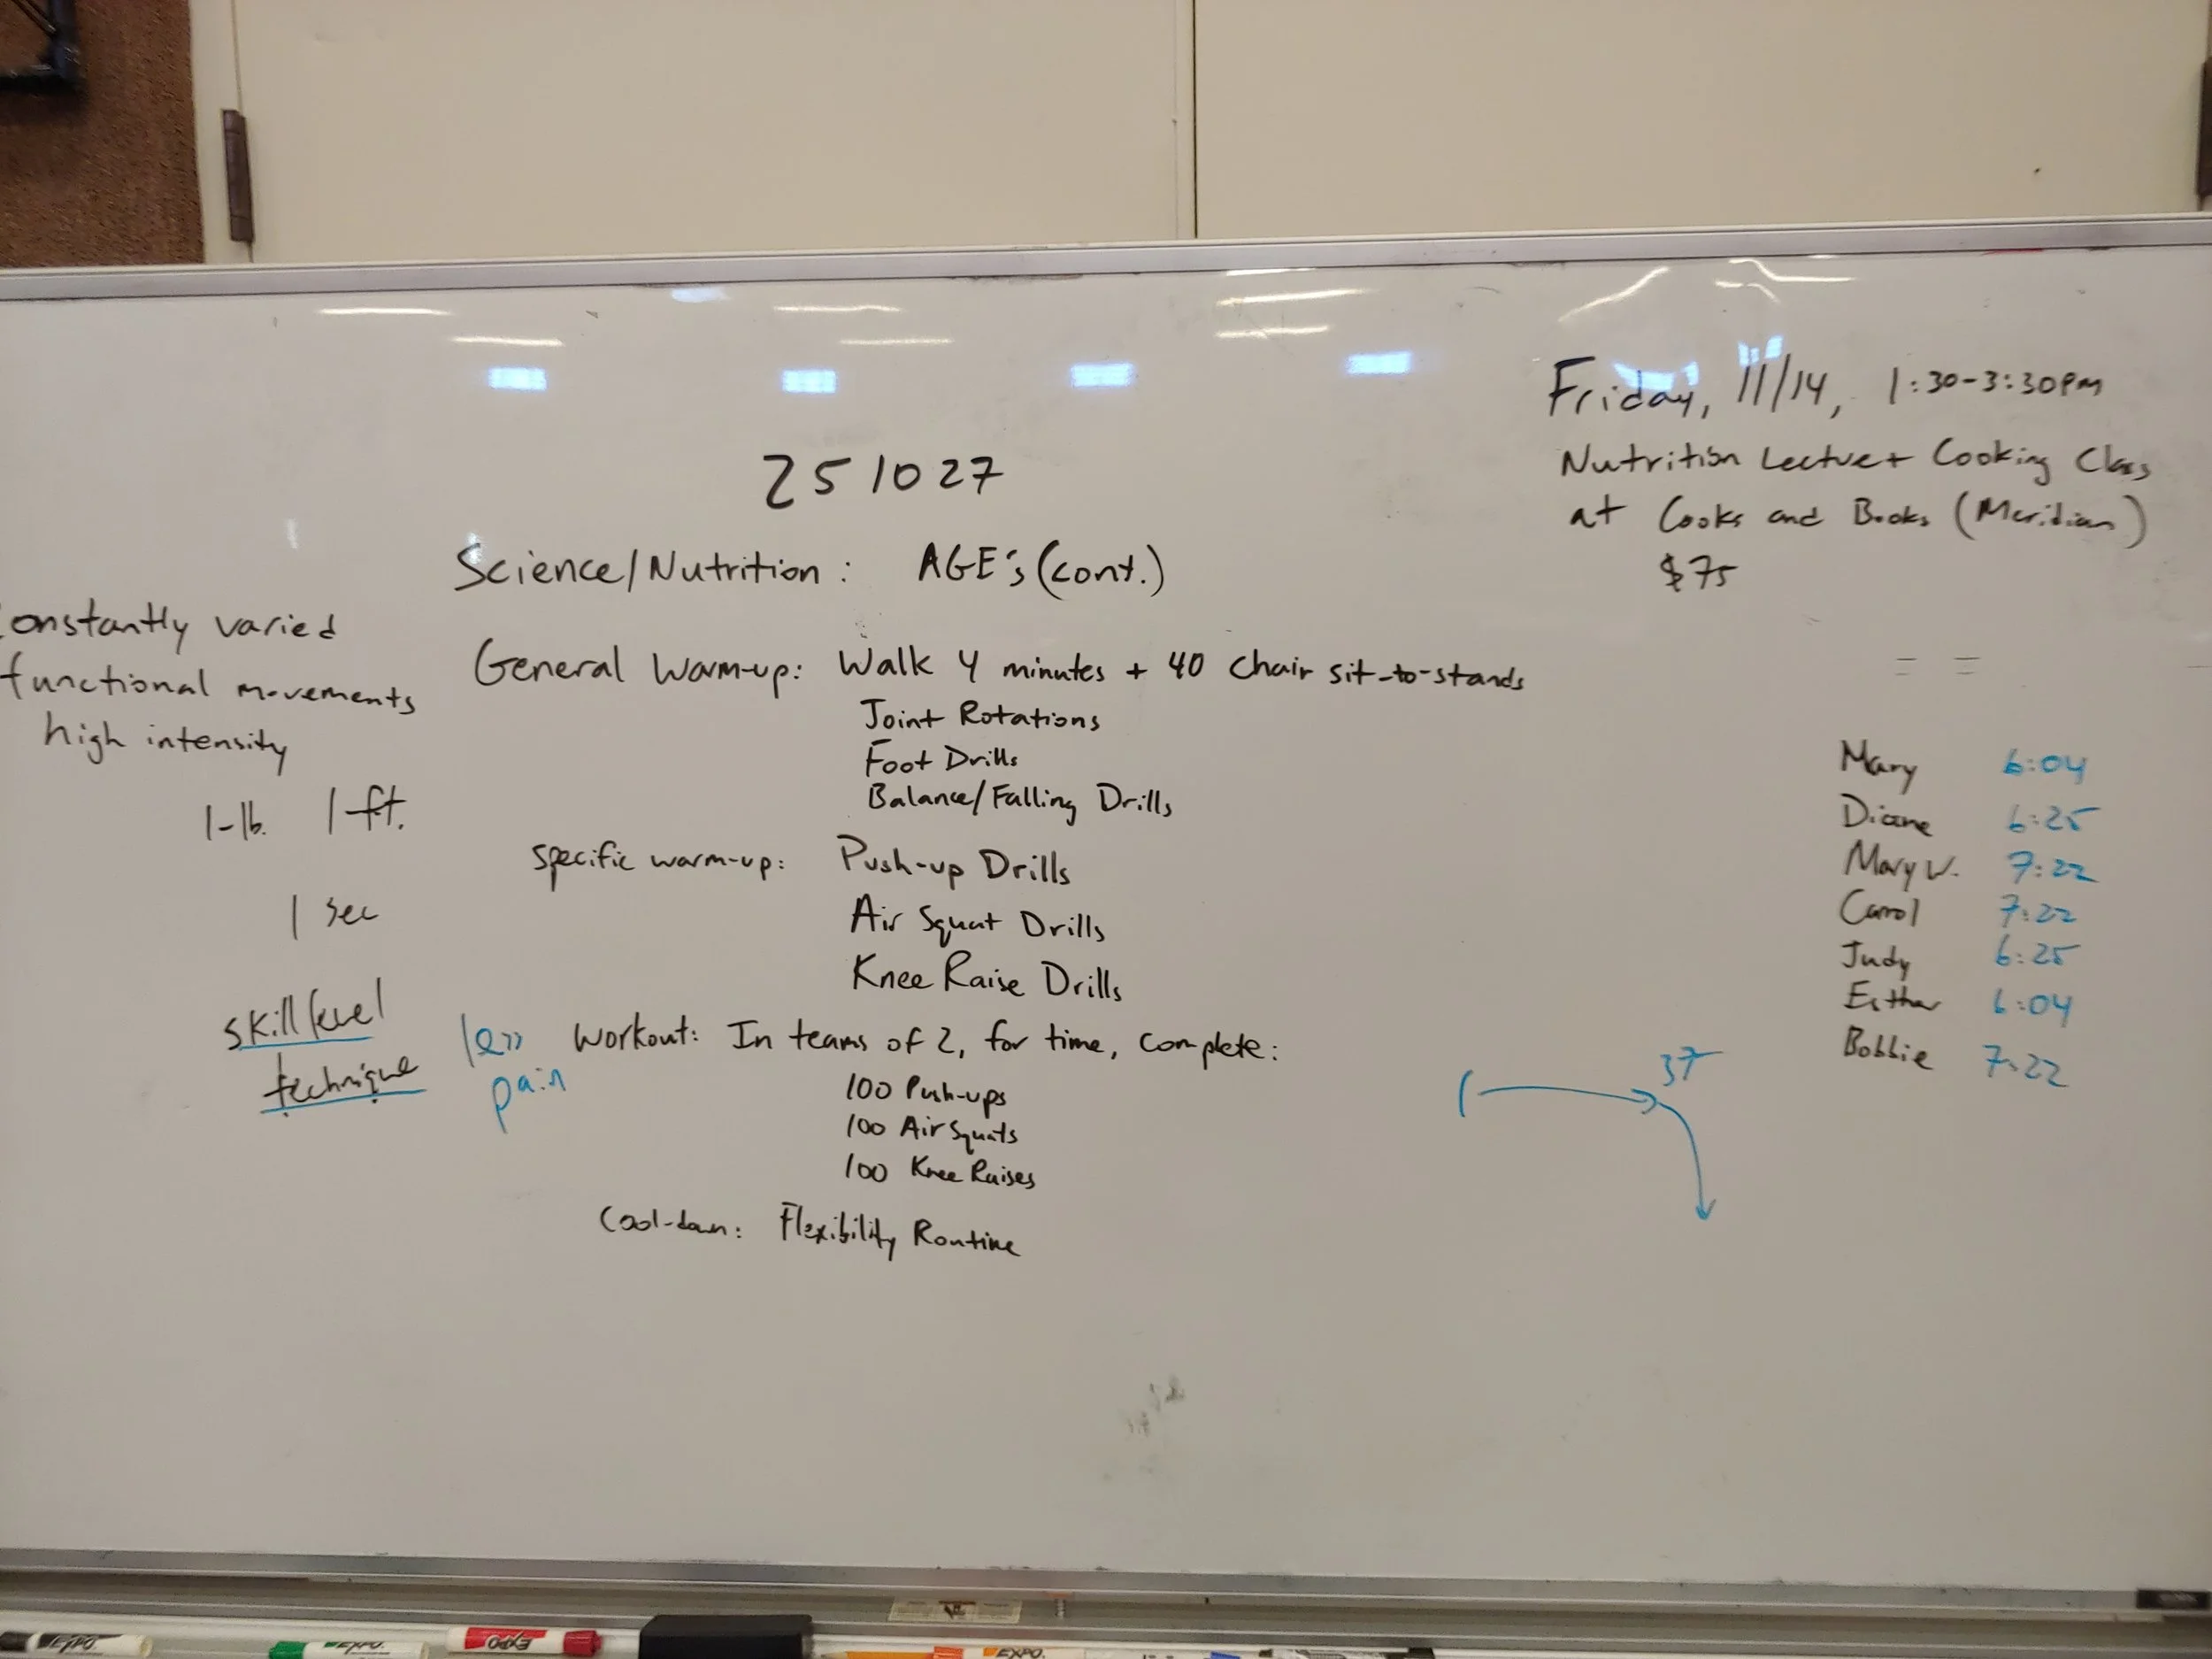 Friday, 11/14, 1:30-3:30PM
Nutrition Lecture + Cooking Class
at Cooks and Books (Meridian)
$75
251027
Science/Nutrition: AGE's (cont.)
General Warm-up: Walk 4 minutes + 40 chair sit-to-stands
Joint Rotations
Foot Drills
Balance/Falling Drills
Specific warm-up: Push-up Drills
Air Squat Drills
Knee Raise Drills
Workout: In teams of 2, for time, complete:
100 Push-ups
100 Air Squats
100 Knee Raises
Cool-down: Flexibility Routine
onstantly varied
functional movements
high intensity
1-lb. 1-ft.
1 sec
skill level
technique
less
pain
Mary 6:04
Diane 6:25
Mary W. 7:22
Carol 7:22
Judy 6:25
Esther 6:04
Bobbie 7:22
37
EXPO
EXPO
EXPO
EXPO